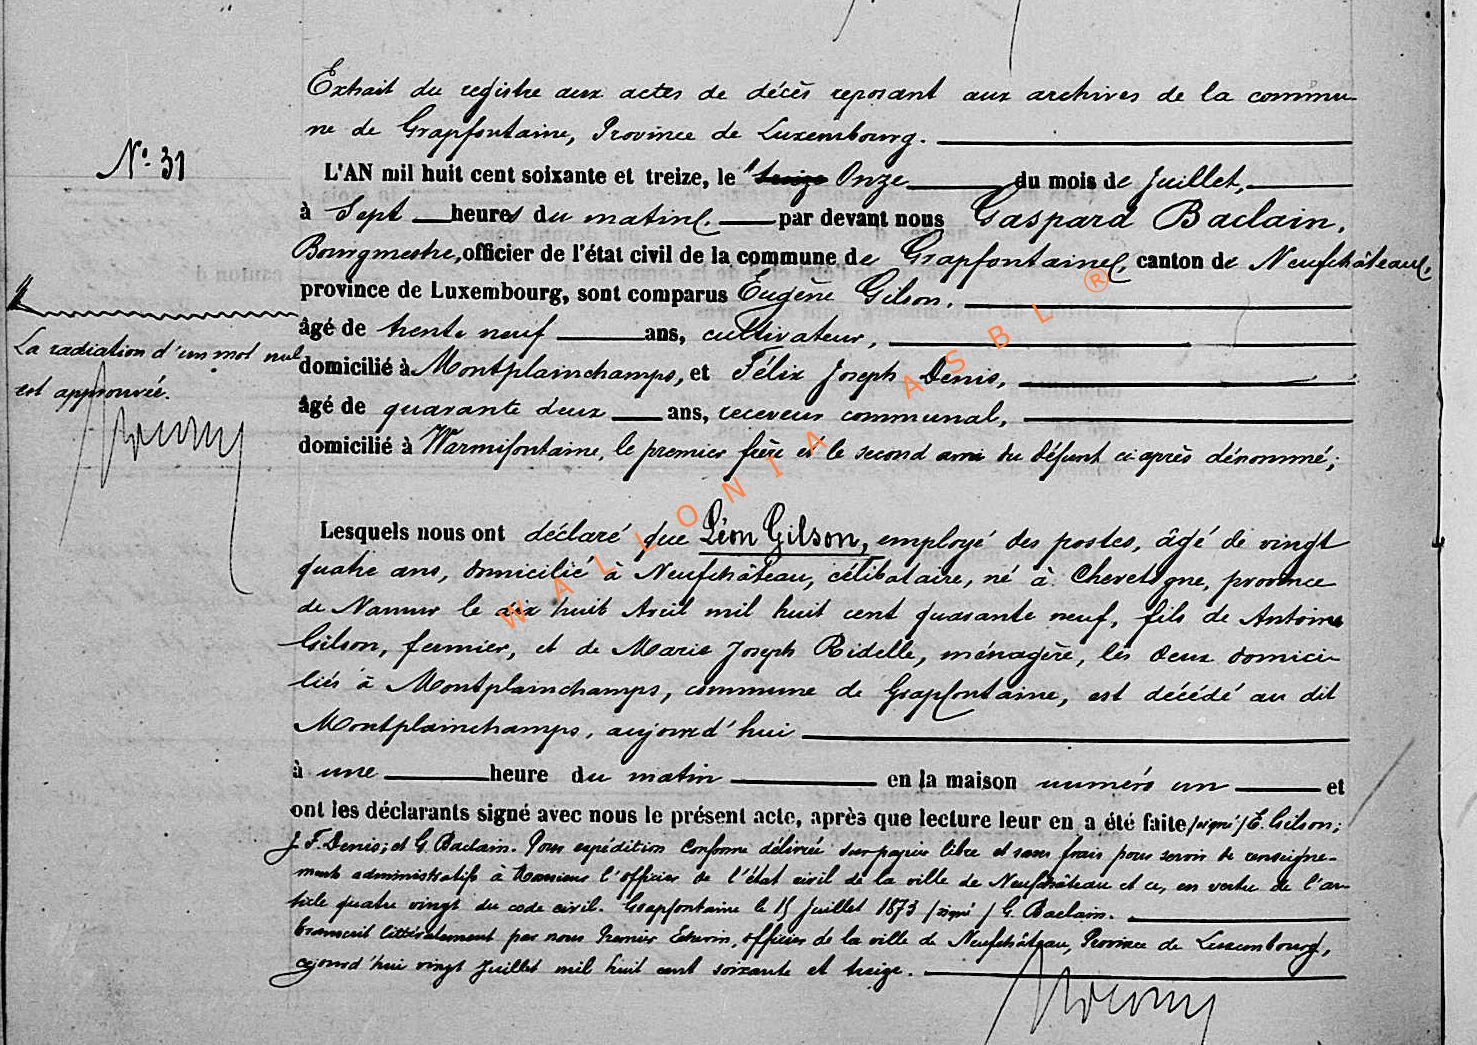 Extrait du registre aux actes de décès reposant aux archives de la commu-
ne de Grapfontaine, Province de Luxembourg.
N° 31
L'AN mil huit cent soixante et treize, le treize Onze du mois de Juillet,
à Sept heures du matin. par devant nous Gaspard Baclain,
Bourgmestre, officier de l'état civil de la commune de Grapfontaine, canton de Neufchâteau,
province de Luxembourg, sont comparus Eugène Gilson,
âgé de trente neuf ans, cultivateur,
La radiation d'un mot nul
est approuvée.
domicilié à Montplainchamps, et Félix Joseph Denis,
âgé de quarante deux ans, receveur communal,
domicilié à Warmifontaine, le premier frère et le second ami du défunt ci après dénommé;
Lesquels nous ont déclaré que Léon Gilson, employé des postes, âgé de vingt
quatre ans, domicilié à Neufchâteau, célibataire, né à Chevetogne, province
de Namur le dix huit Avril mil huit cent quarante neuf, fils de Antoine
Gilson, fermier, et de Marie Joseph Ridelle, ménagère, les deux domici-
liés à Montplainchamps, commune de Grapfontaine, est décédé au dit
Montplainchamps, aujourd'hui
à une heure du matin en la maison numéro un et
ont les déclarants signé avec nous le présent acte, après que lecture leur en a été faite /signé/ E. Gilson;
J. F. Denis; et G. Baclain. Pour expédition conforme délivrée sur papier libre et sans frais pour servir de renseigne-
ments administratifs à Monsieur l'officier de l'état civil de la ville de Neufchâteau et ce, en vertu de l'ar-
ticle quatre vingt du code civil. Grapfontaine le 15 Juillet 1873 /signé/ G. Baclain.
transcrit littéralement par nous Premier Echevin, officier de la ville de Neufchâteau, Province de Luxembourg,
aujourd'hui vingt Juillet mil huit cent soixante et treize.
WALLONIA ASBL ®